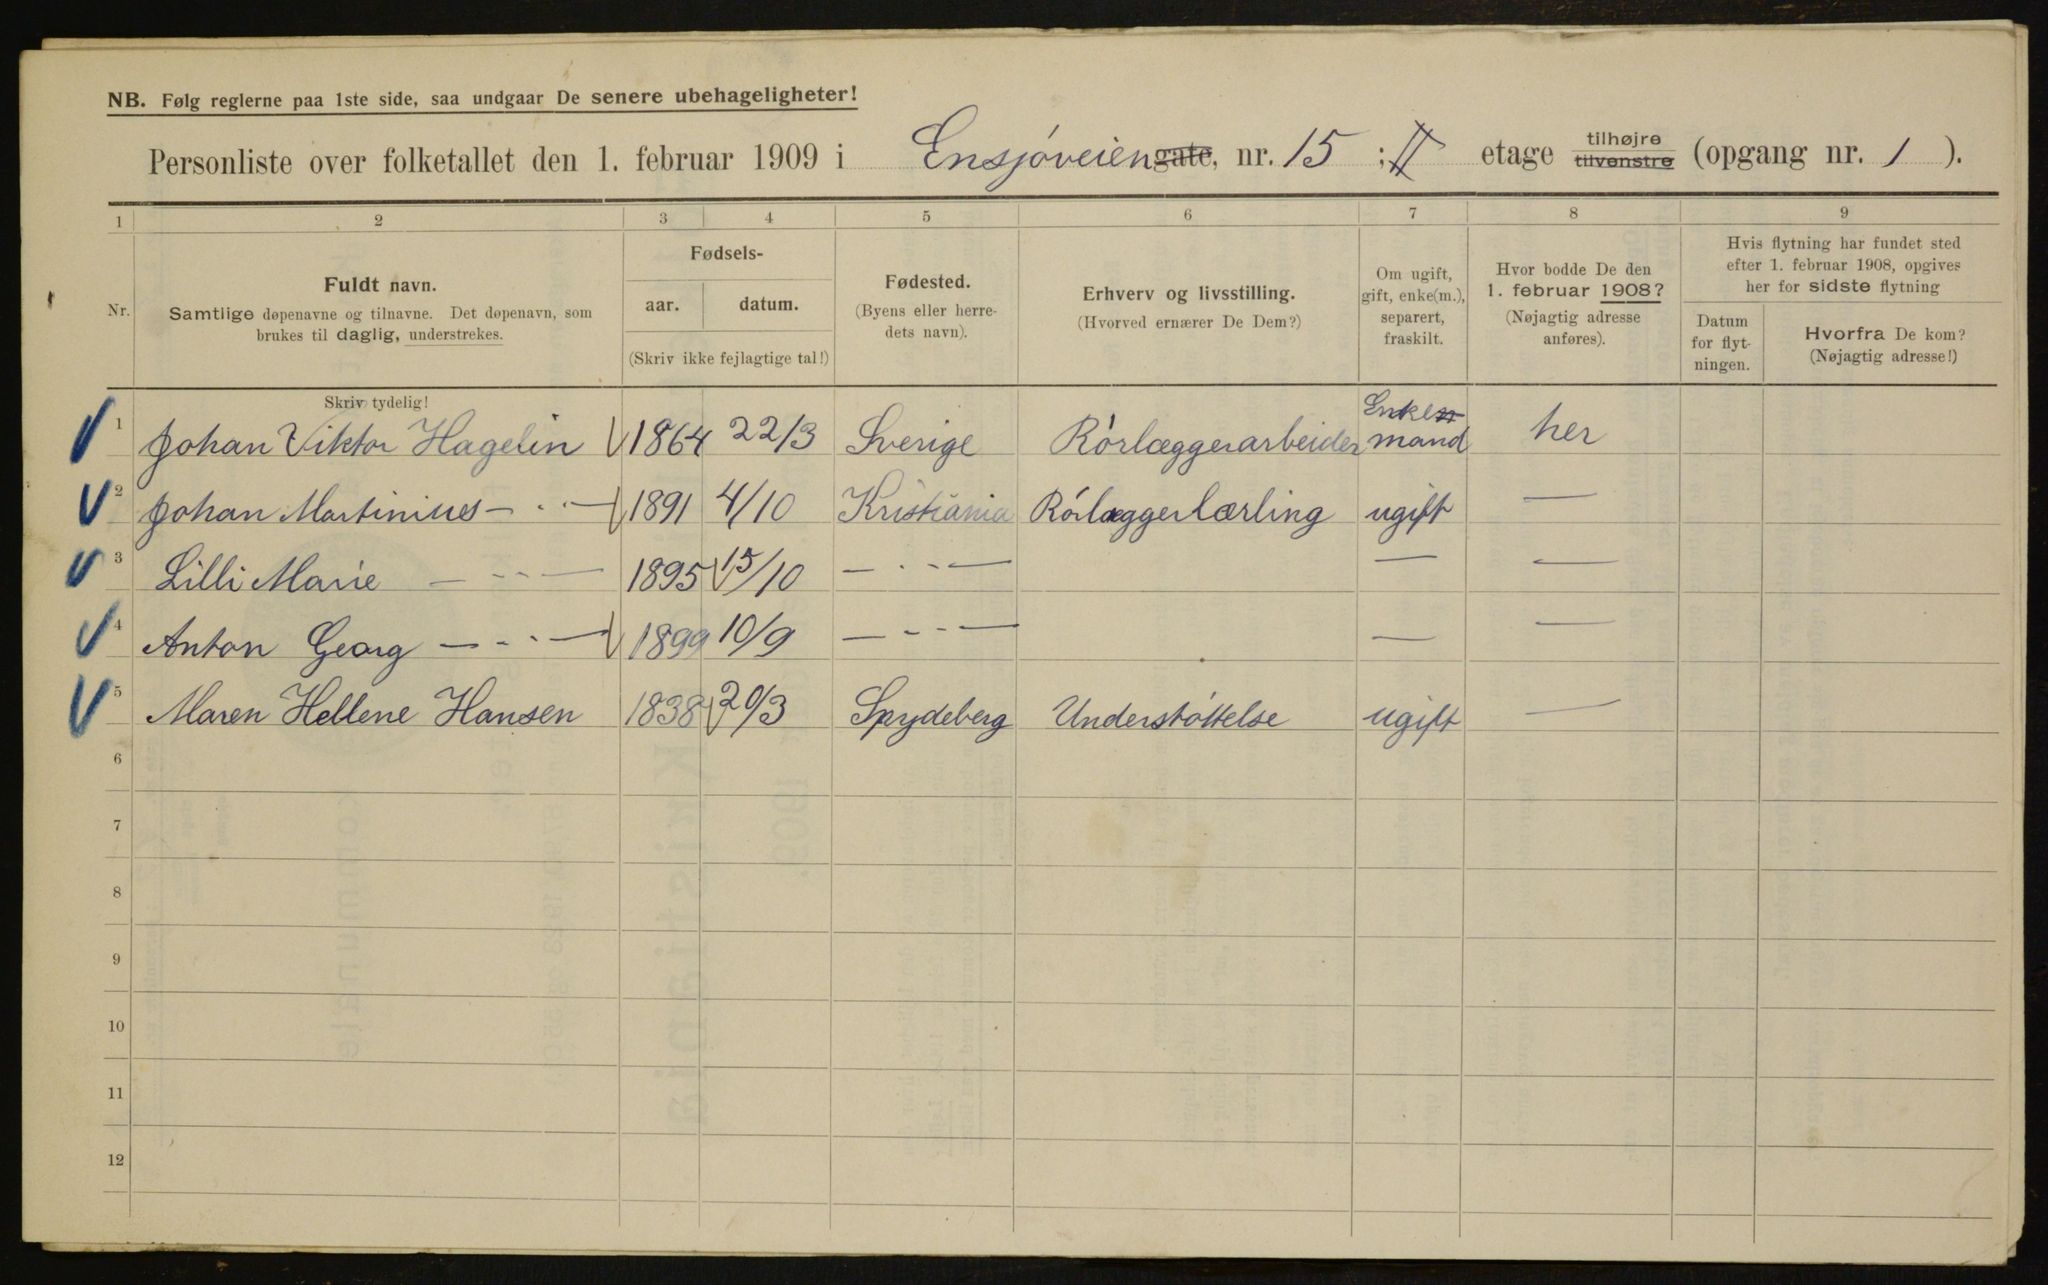 NB. Følg reglerne paa 1ste side, saa undgaar De senere ubehageligheter!
Personliste over folketallet den 1. februar 1909 i Ensjóveien gate, nr. 15 ; II etage tilhøjre tilvenstre (opgang nr. 1 ).
1 2 3 4 5 6 7 8 9
Nr. Fuldt navn. Samtlige døpenavne og tilnavne. Det døpenavn, som brukes til daglig, understrekes.
Fødsels- aar. datum. (Skriv ikke fejlagtige tal!)
Fødested. (Byens eller herredets navn).
Erhverv og livsstilling. (Hvorved ernærer De Dem?)
Om ugift, gift, enke(m.), separert, fraskilt.
Hvor bodde De den 1. februar 1908? (Nøjagtig adresse anføres).
Hvis flytning har fundet sted efter 1. februar 1908, opgives her for sidste flytning
Datum for flytningen. Hvorfra De kom? (Nøjagtig adresse!)
Skriv tydelig!
1 Johan Viktor Hagelin 1864 22/3 Sverige Rórlæggerarbeider Enkemand her
2 Johan Martinius — · · — 1891 4/10 Kristiania Rórlæggerlærling ugift —
3 Lilli Marie — · · — 1895 15/10 — · · — — —
4 Anton Georg — · · — 1899 10/9 — · · — — —
5 Maren Hellene Hansen 1838 20/3 Spydeberg Understóttelse ugift —
6
7
8
9
10
11
12